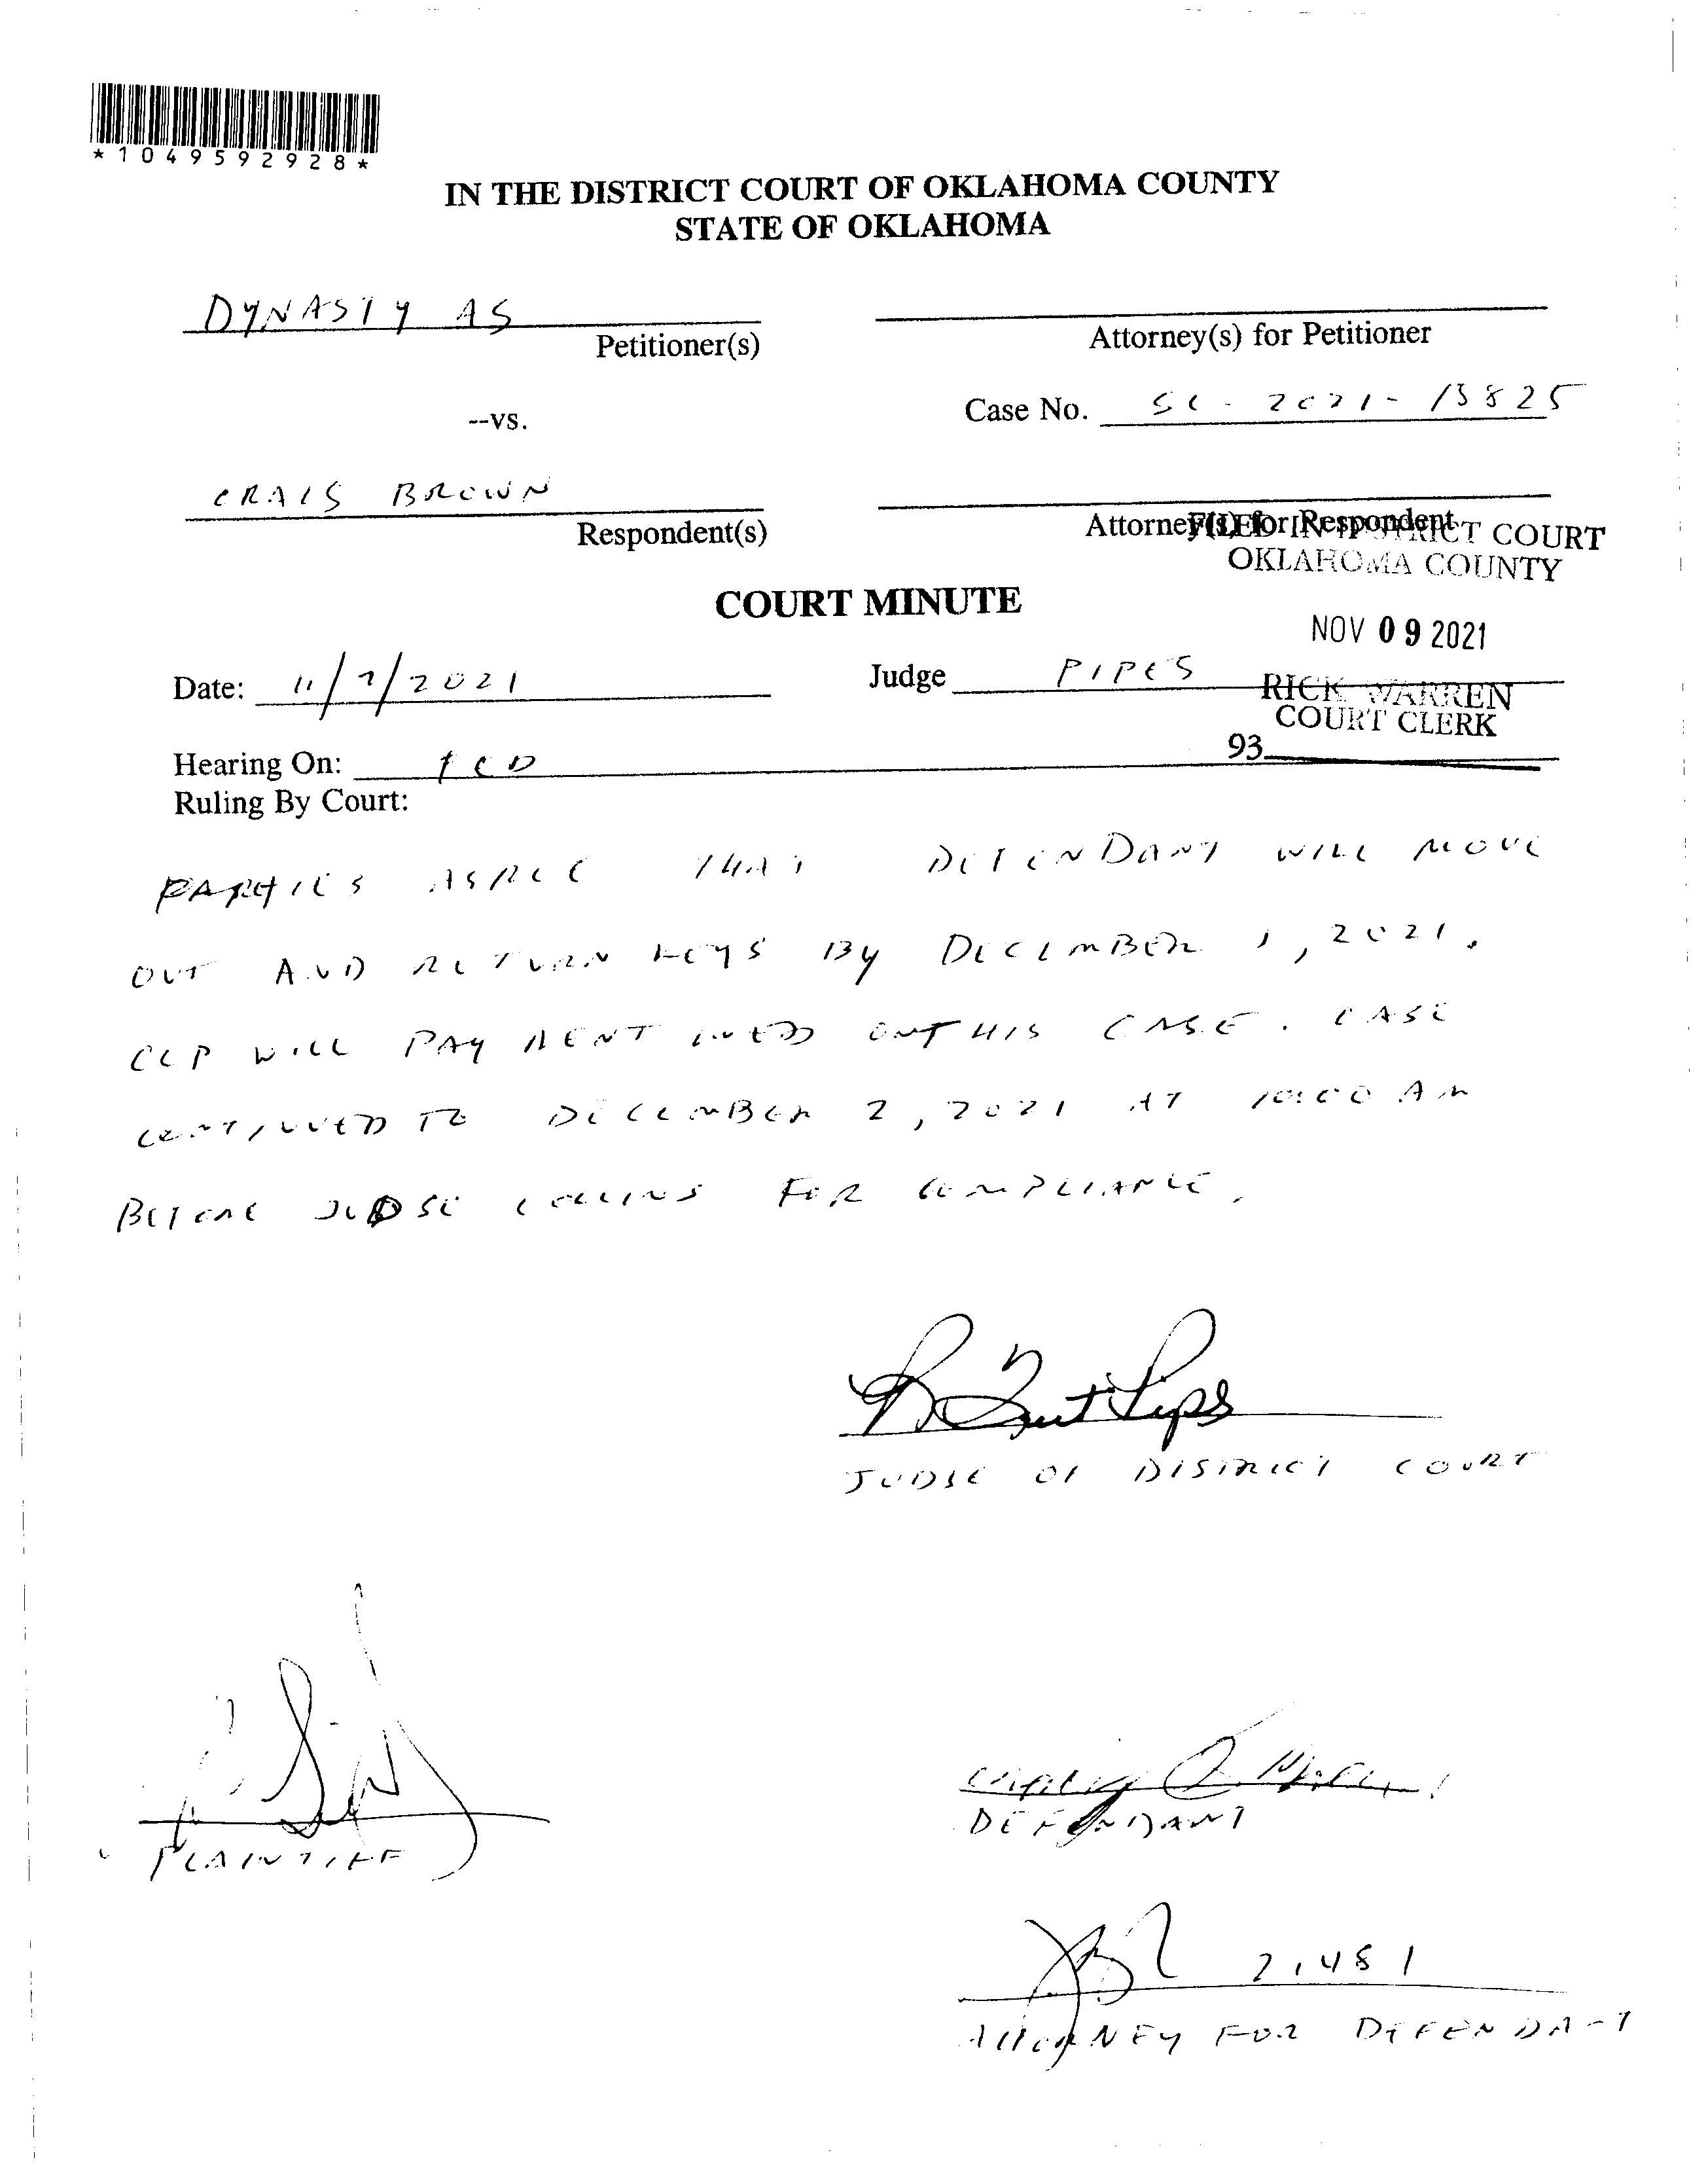 *1049592928*
IN THE DISTRICT COURT OF OKLAHOMA COUNTY
STATE OF OKLAHOMA
DYNASTY AS
Petitioner(s)
Attorney(s) for Petitioner
--vs.
Case No. SC-2021-13825
CRAIG BROWN
Respondent(s)
Attorney(s) for Respondent
FILED IN DISTRICT COURT
OKLAHOMA COUNTY
COURT MINUTE
NOV 09 2021
Date: 11/9/2021
Judge PIPES
RICK WARREN
COURT CLERK
93
Hearing On: FED
Ruling By Court:
PARTIES AGREE THAT DEFENDANT WILL MOVE
OUT AND RETURN KEYS BY DECEMBER 1, 2021.
CCP WILL PAY RENT OWED ON THIS CASE. CASE
CONTINUED TO DECEMBER 2, 2021 AT 10:00 AM
BEFORE JUDGE COLLINS FOR COMPLIANCE.
JUDGE OF DISTRICT COURT
PLAINTIFF
DEFENDANT
21481
ATTORNEY FOR DEFENDANT